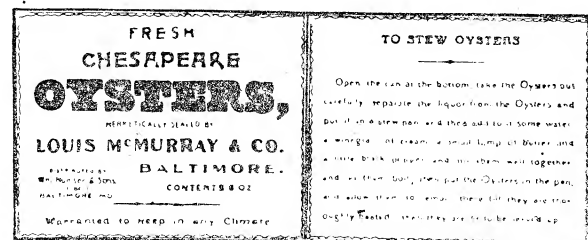 FRESH
CHESAPEAKE
OYSTERS,
HERMETICALLY SEALED BY
LOUIS McMURRAY & CO.
BALTIMORE.
CONTENTS 8 OZ
BALTIMORE MD
Warranted to Keep in any Climate
TO STEW OYSTERS
Open the can at the bottom take the Oysters out
carefully separate the liquor from the Oysters and
put it in a stew pan and then add to it some water
a of cream a small lump of butter and
a little black pepper and mix them well together
and let them boil, then put the Oysters in the pan,
and allow them to there till they are thor
oughly they are to be served up